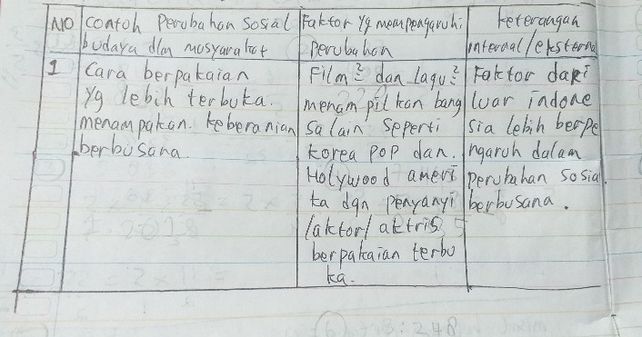 NO
Contoh Perubahan Sosial
budaya dlm masyarakat
Faktor yg mempengaruhi
Perubahan
keterangan
internal/eksterna
1
Cara berpakaian
yg lebih terbuka.
menampakan keberanian
berbusana.
Film² dan lagu²
menampilkan bang
sa lain seperti
Korea POP dan.
Holywood ameri
ka dan penyanyi
/aktor/ aktris
berpakaian terbu
ka.
Faktor dari
luar indone
sia lebih berpe
ngaruh dalam
perubahan sosial.
berbusana.